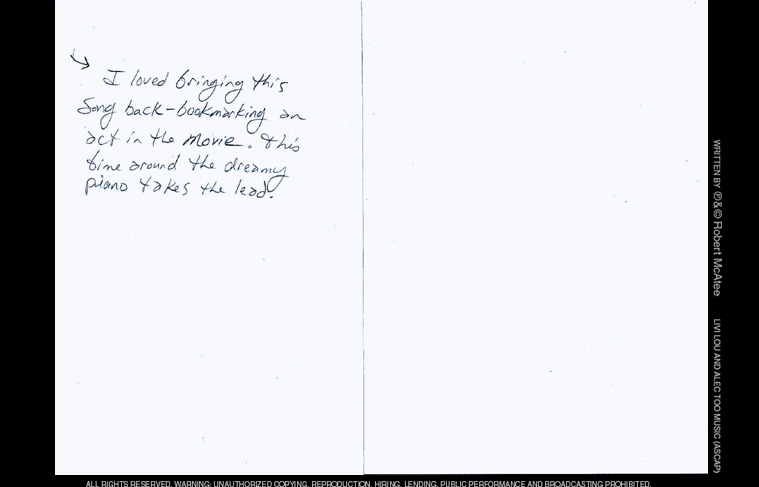 I loved bringing this
song back-bookmarking an
act in the movie. This
time around the dreamy
piano takes the lead.
WRITTEN BY ℗&© Robert McAtee
LIVI LOU AND ALEC TOO MUSIC (ASCAP)
ALL RIGHTS RESERVED. WARNING: UNAUTHORIZED COPYING, REPRODUCTION, HIRING, LENDING, PUBLIC PERFORMANCE AND BROADCASTING PROHIBITED.